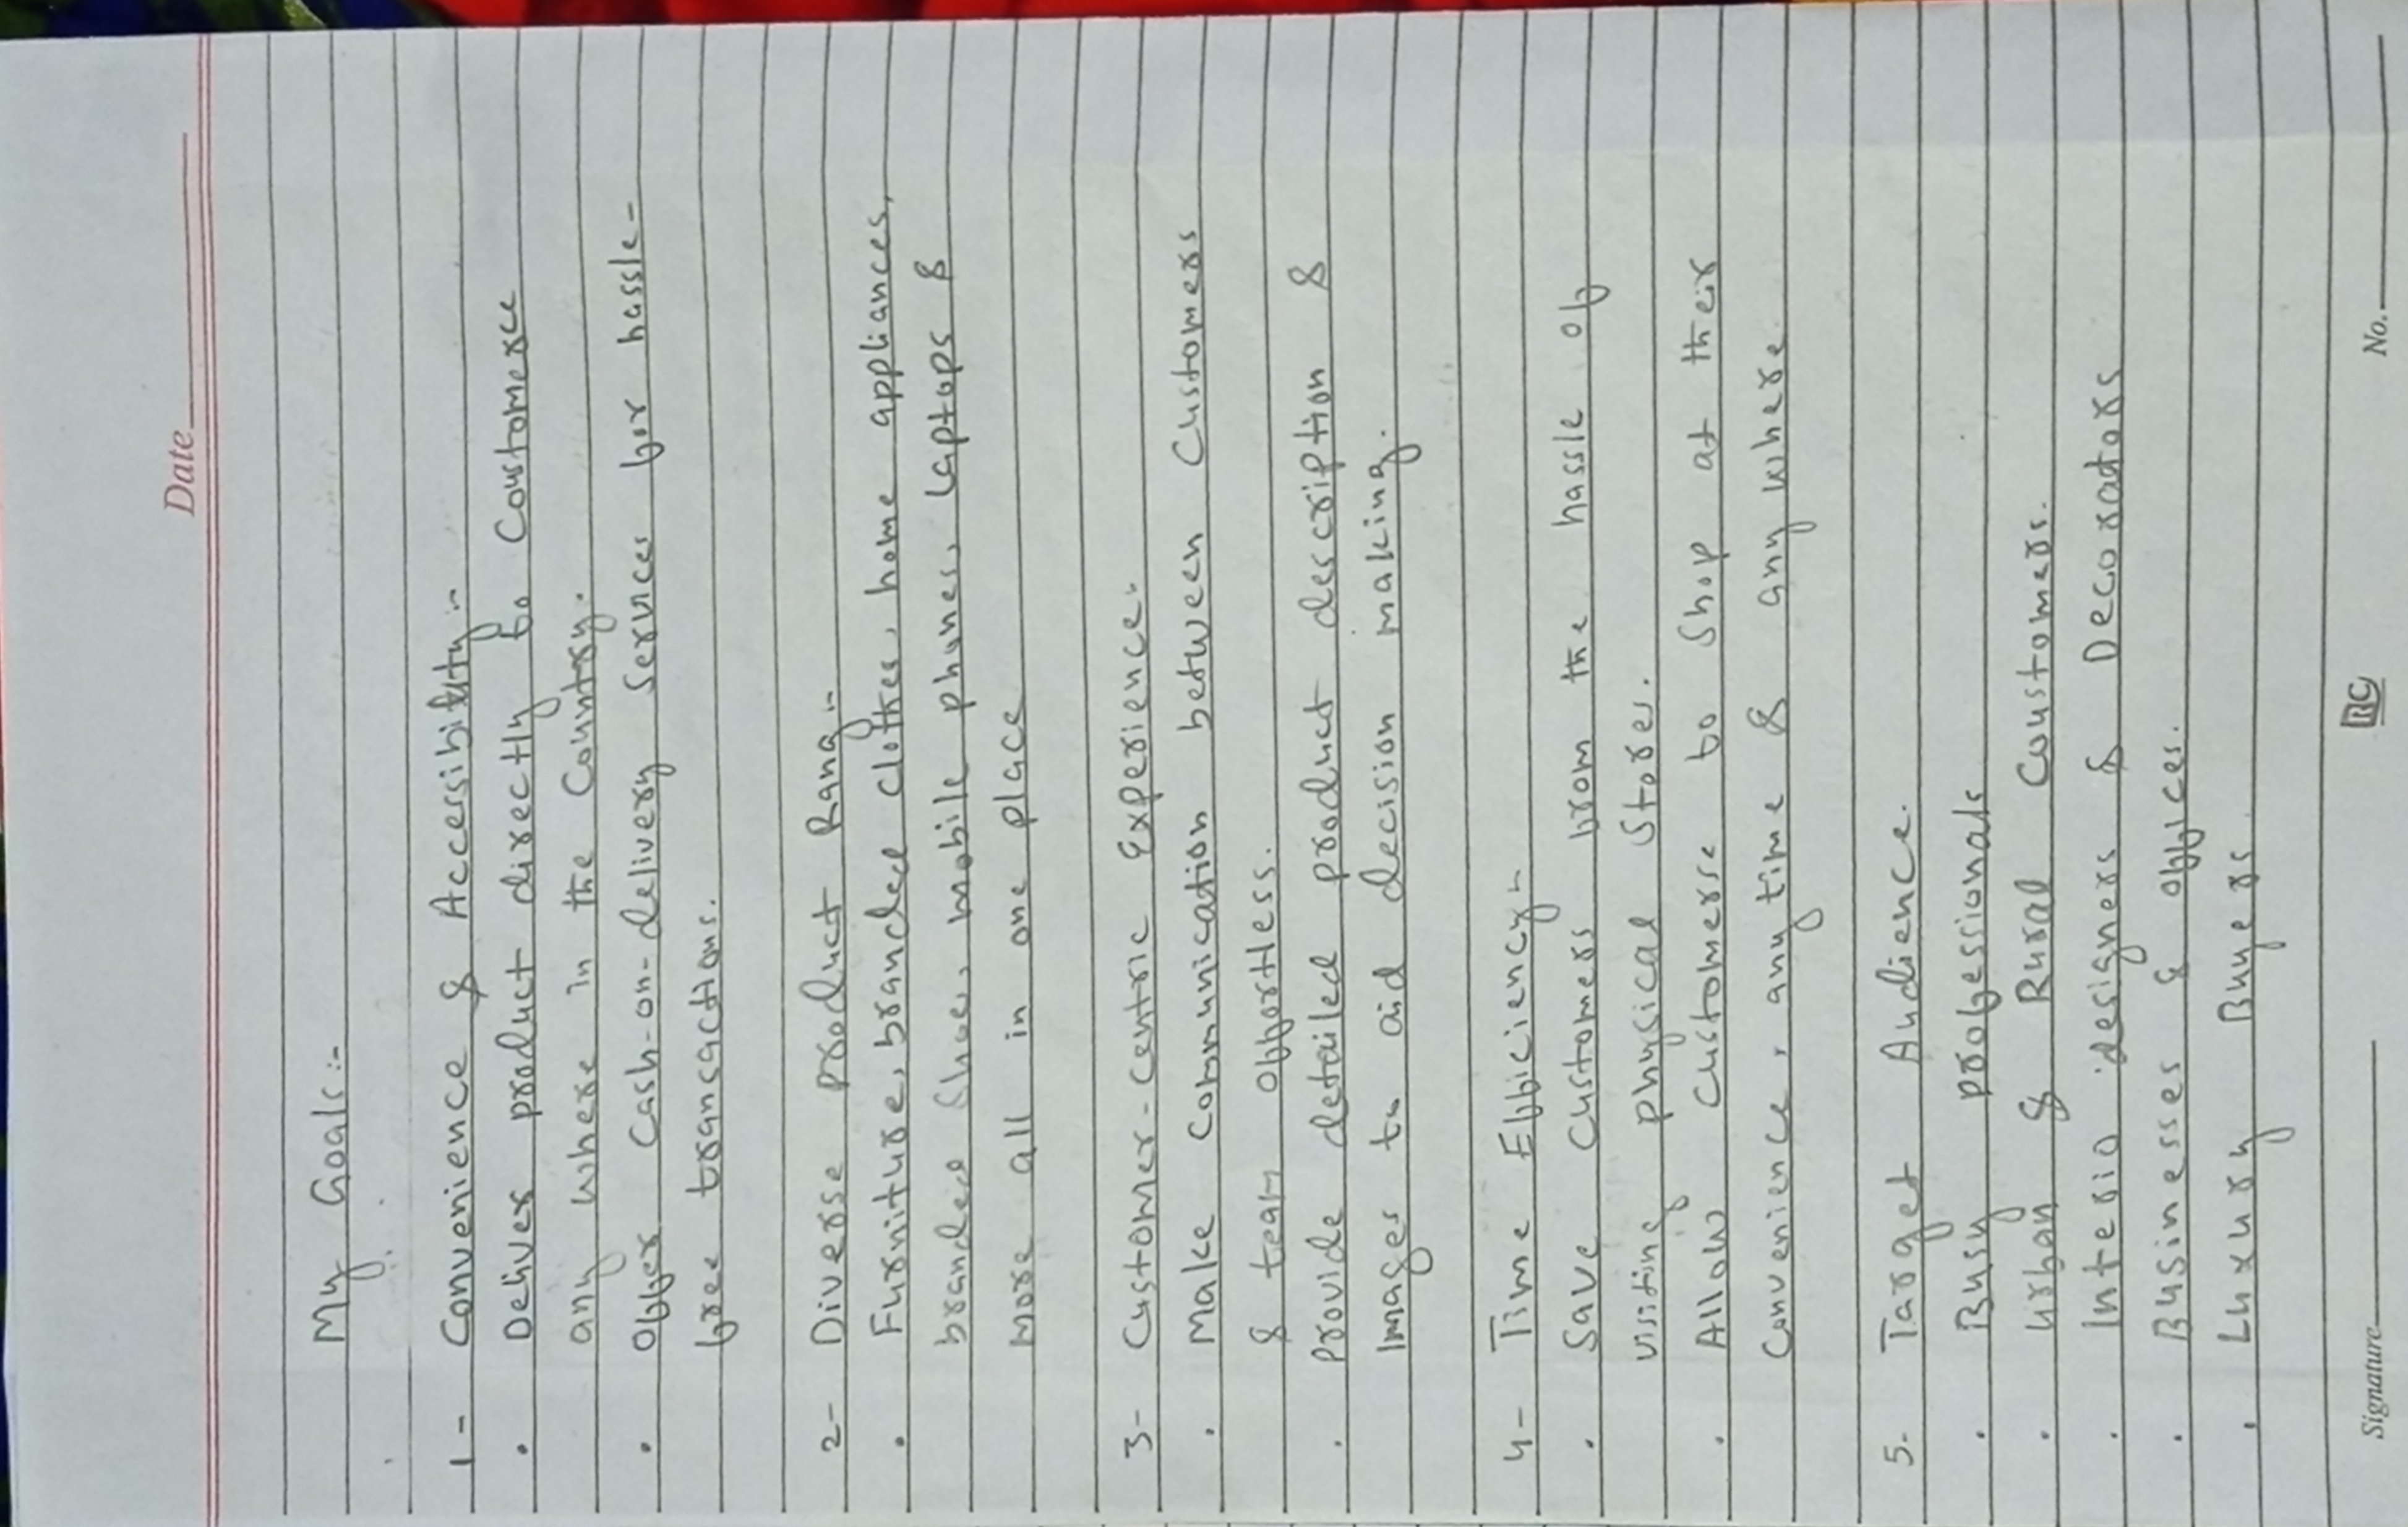 Date
My Goals:-
1- Convenience & Accessibility-
• Deliver product directly to Coustomerce
any where in the Country.
• Offer Cash-on-delivery Services for hassle-
free transactions.
2- Diverse product Rang-
• Furniture, branded Clothes, home appliances,
branded Shoes, mobile phones, Laptops &
More all in one place
3- Customer-centric Experience-
• Make Communication between Customers
& team offortless.
• Provide detailed product description &
Images to aid decision making.
4- Time Efficiency-
• Save Customers from the hassle of
visiting physical Stores.
• Allow Customerse to Shop at their
Convenience, any time & any where.
5- Target Audience.
• Busy professionals
• Urban & Rural Coustomers.
• Interio designers & Decorators
• Businesses & offices.
• Luxury Buyers
Signature RC No.